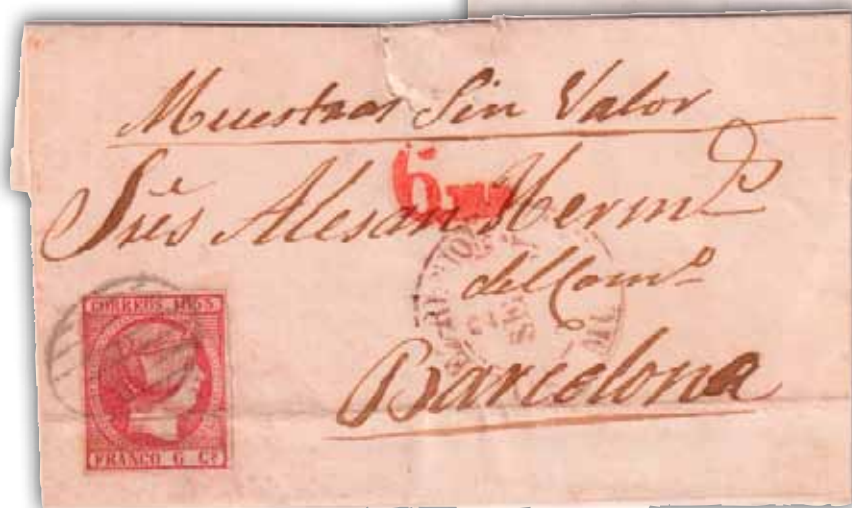 Muestras Sin Valor
6
Sres Alesan Hermos
del Como
Barcelona
CORREOS 1853
FRANCO 6 Cs